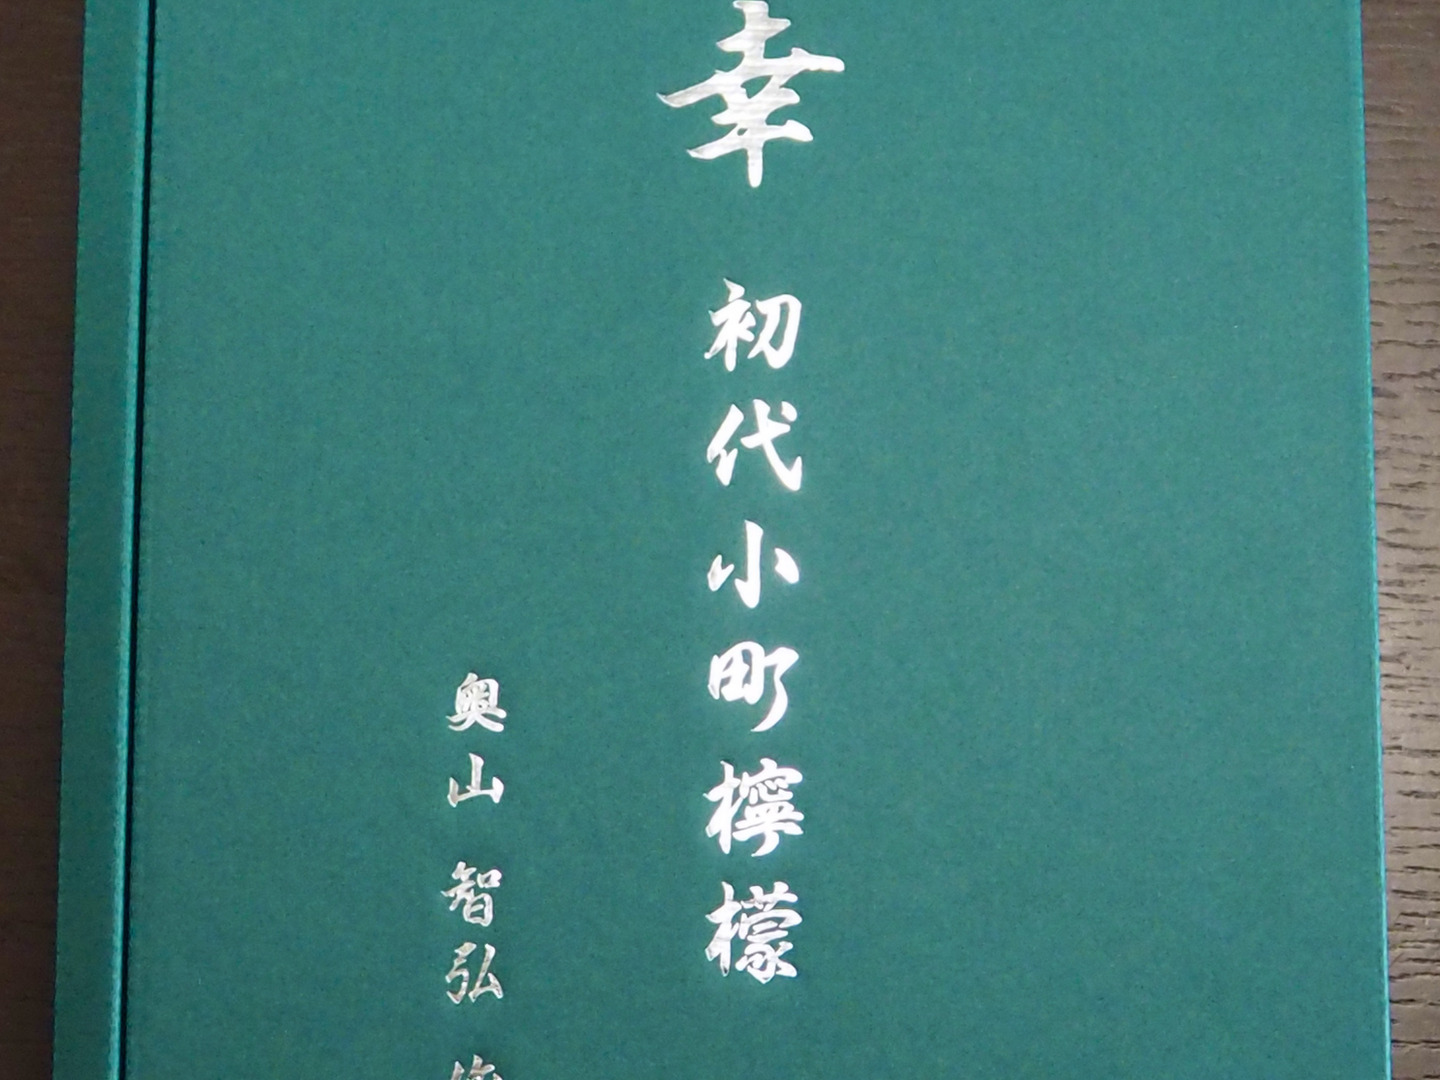 幸 初代小町檸檬
奥山 智弘